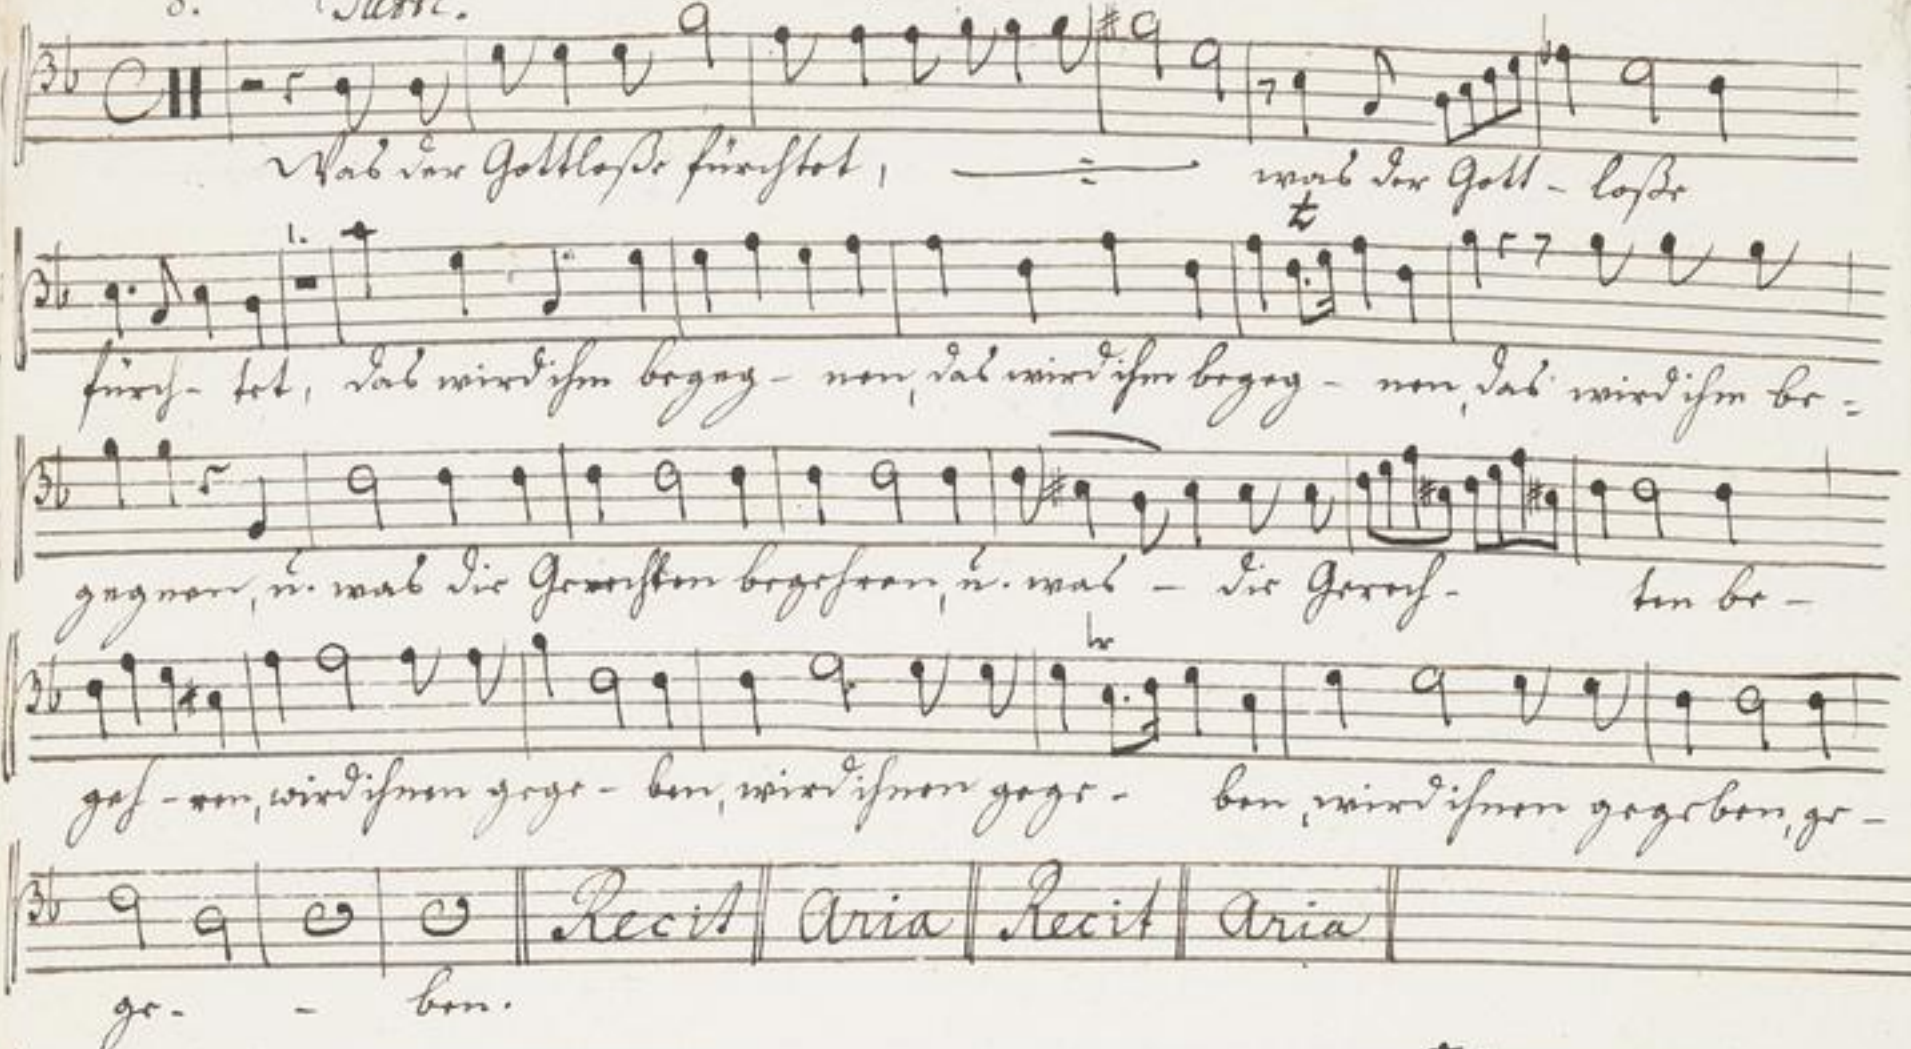 8.
Was der Gottloße fürchtet, was der Gott - loße
fürch - tet, das wird ihm begeg - nen, das wird ihm begeg - nen, das wird ihm be -
gegnen, u. was die Gerechten begehren, u. was - die Gerech - ten be -
geh - ren, wird ihnen gege - ben, wird ihnen gege - ben, wird ihnen gegeben, ge -
Recit Aria Recit Aria
ge - - ben.